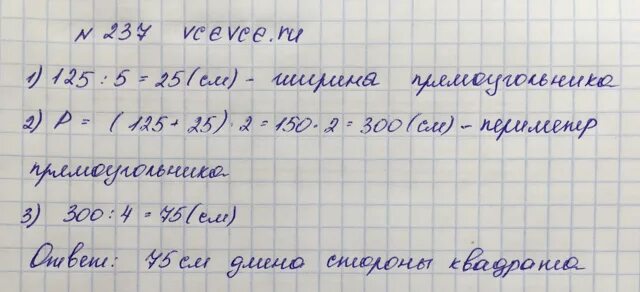 N 237 vcevce.ru
1) 125 : 5 = 25 (см) - ширина прямоугольника
2) P = (125 + 25) · 2 = 150 · 2 = 300 (см) - периметр
прямоугольника
3) 300 : 4 = 75 (см)
Ответ: 75 см длина стороны квадрата